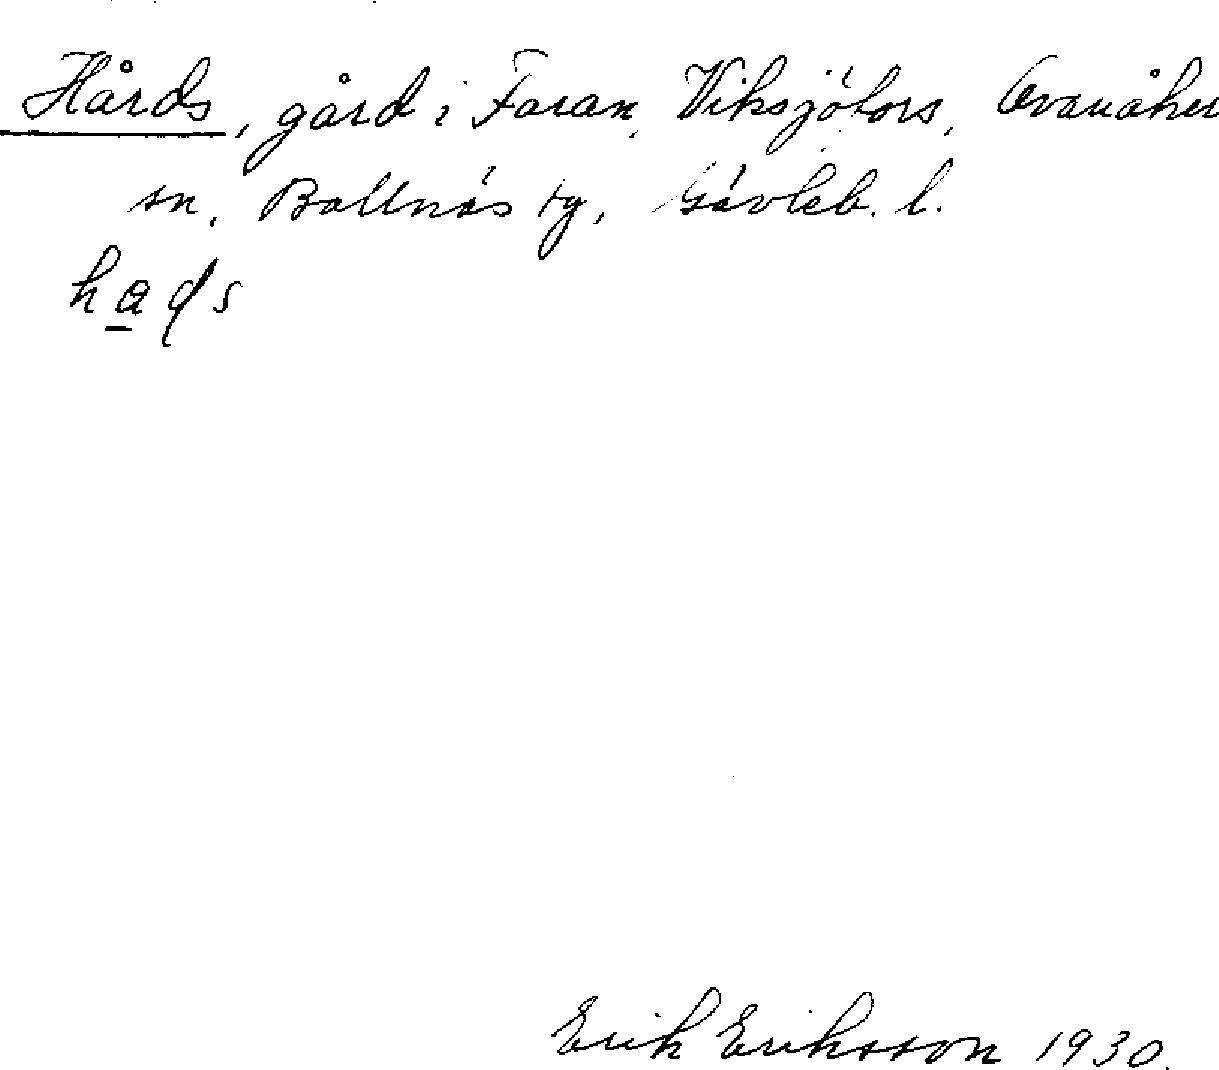 Hårds, gård i Faran, Viksjöfors, Ovanåker
sn, Bollnäs tg, Gävleb. l.
hads
Erik Eriksson 1930.